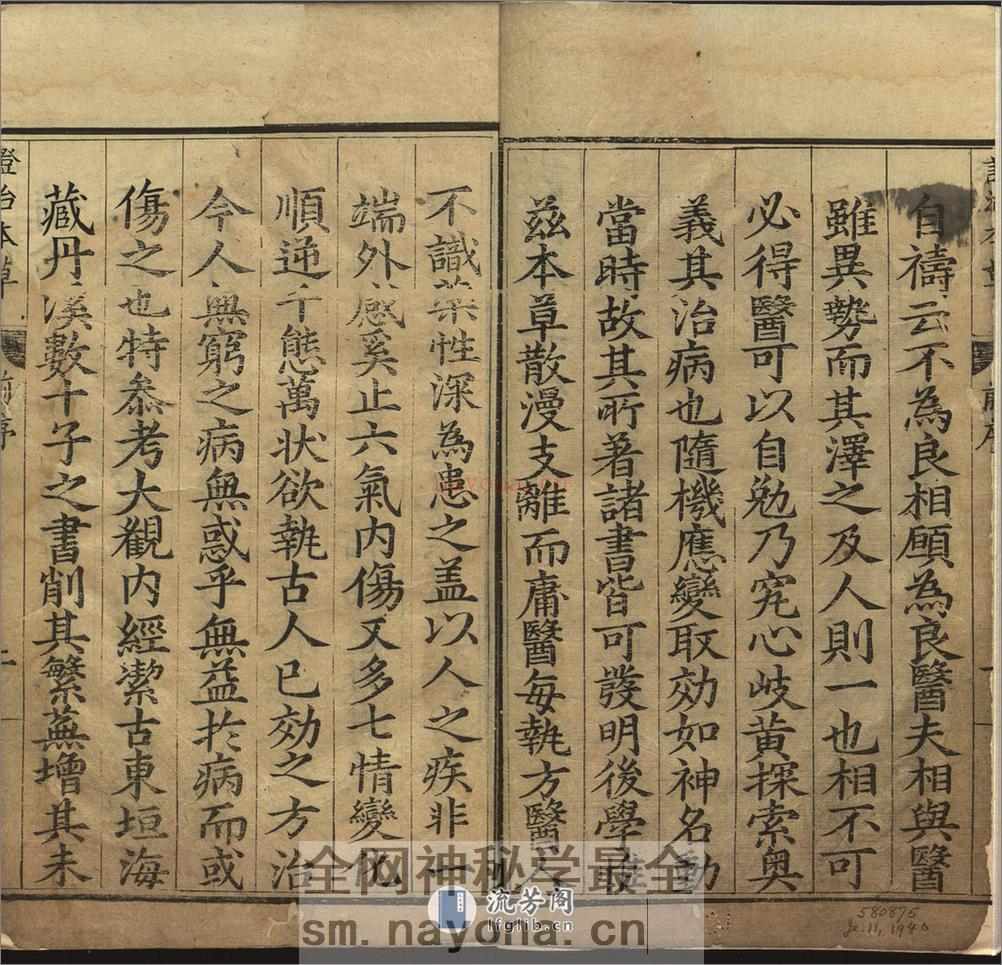 自禱云不為良相願為良醫夫相與醫
雖異勢而其澤之及人則一也相不可
必得醫可以自勉乃究心岐黃探索奧
義其治病也隨機應變取効如神名動
當時故其所著諸書皆可發明後學最
兹本草散漫支離而庸醫每執方醫人
不識藥性深為患之盖以人之疾非一
端外感奚止六氣内傷又多七情變化
順逆千態萬状欲執古人已効之方治
今人無窮之病無惑乎無益於病而或
傷之也特叅考大觀内經潔古東垣海
藏丹溪數十子之書削其繁蕪增其未
證治本草
前序
二
全网神秘学最全
流芳阁
lfglib.cn
sm.nayona.cn
nayona.cn
580875